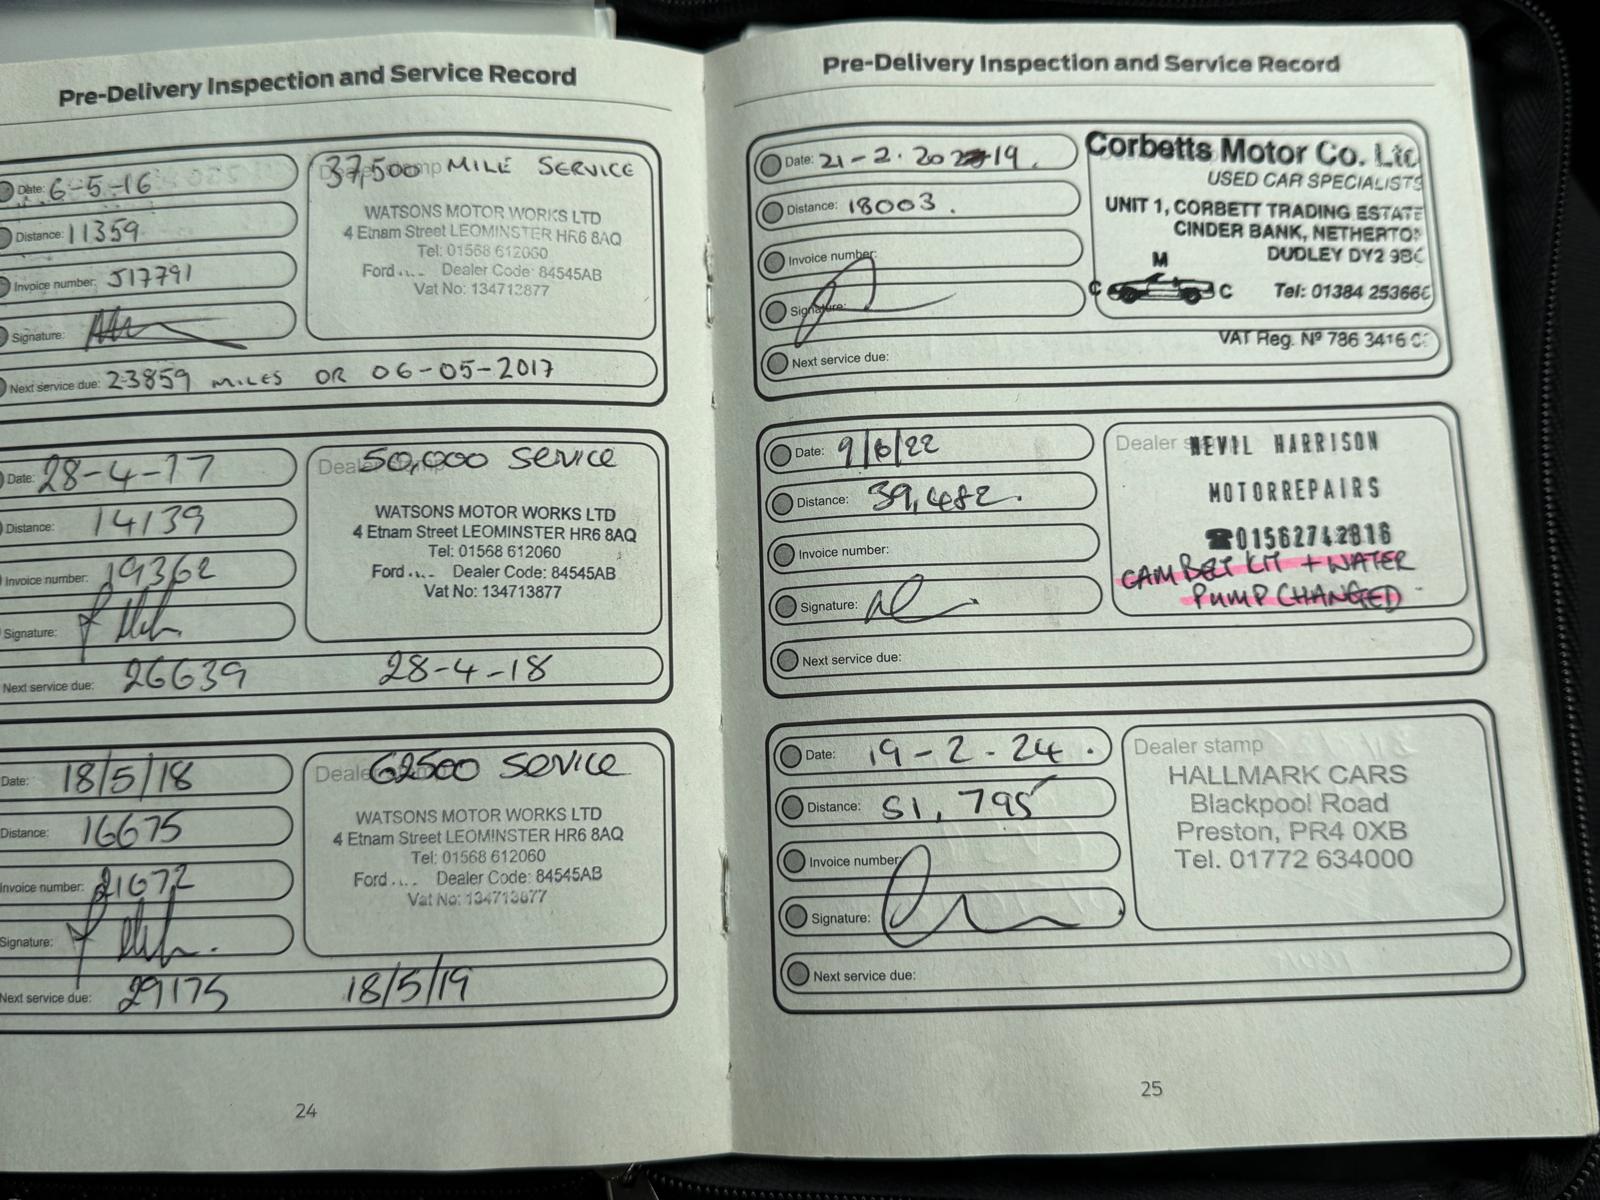 Pre-Delivery Inspection and Service Record
Date: 6-5-16
Distance: 11359
Invoice number: J17791
Signature:
37,500 MILE SERVICE
WATSONS MOTOR WORKS LTD
4 Etnam Street LEOMINSTER HR6 8AQ
Tel: 01568 612060
Ford .... Dealer Code: 84545AB
Vat No: 134713877
Next service due: 23859 MILES OR 06-05-2017
Date: 28-4-17
Distance: 14139
Invoice number: 19362
Signature:
50,000 Service
WATSONS MOTOR WORKS LTD
4 Etnam Street LEOMINSTER HR6 8AQ
Tel: 01568 612060
Ford .... Dealer Code: 84545AB
Vat No: 134713877
Next service due: 26639 28-4-18
Date: 18/5/18
Distance: 16675
Invoice number: 21672
Signature:
62500 Service
WATSONS MOTOR WORKS LTD
4 Etnam Street LEOMINSTER HR6 8AQ
Tel: 01568 612060
Ford .... Dealer Code: 84545AB
Vat No: 134713877
Next service due: 29175 18/5/19
24
Pre-Delivery Inspection and Service Record
Date: 21-2-2019.
Distance: 18003.
Invoice number:
Signature:
Corbetts Motor Co. Ltd
USED CAR SPECIALISTS
UNIT 1, CORBETT TRADING ESTATE
CINDER BANK, NETHERTON
DUDLEY DY2 9BC
M
C C Tel: 01384 253666
VAT Reg. Nº 786 3416
Next service due:
Date: 9/6/22
Distance: 39,482.
Invoice number:
Signature:
Dealer
NEVIL HARRISON
MOTORREPAIRS
☎01562742816
CAM BELT KIT + WATER
PUMP CHANGED
Next service due:
Date: 19-2-24.
Distance: 51,795
Invoice number
Signature:
Dealer stamp
HALLMARK CARS
Blackpool Road
Preston, PR4 0XB
Tel. 01772 634000
Next service due:
25